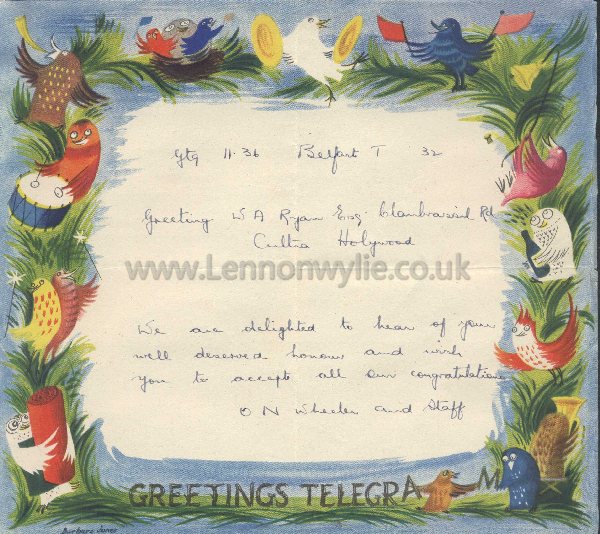 gtg 11.36 Belfast T 32
Greeting W A Ryan Esq. Clanbrassil Rd
Cultra Holywood
www.Lennonwylie.co.uk
We are delighted to hear of your
well deserved honour and wish
you to accept all our congratulations
O N Wheeler and Staff
GREETINGS TELEGRAM
Barbara Jones